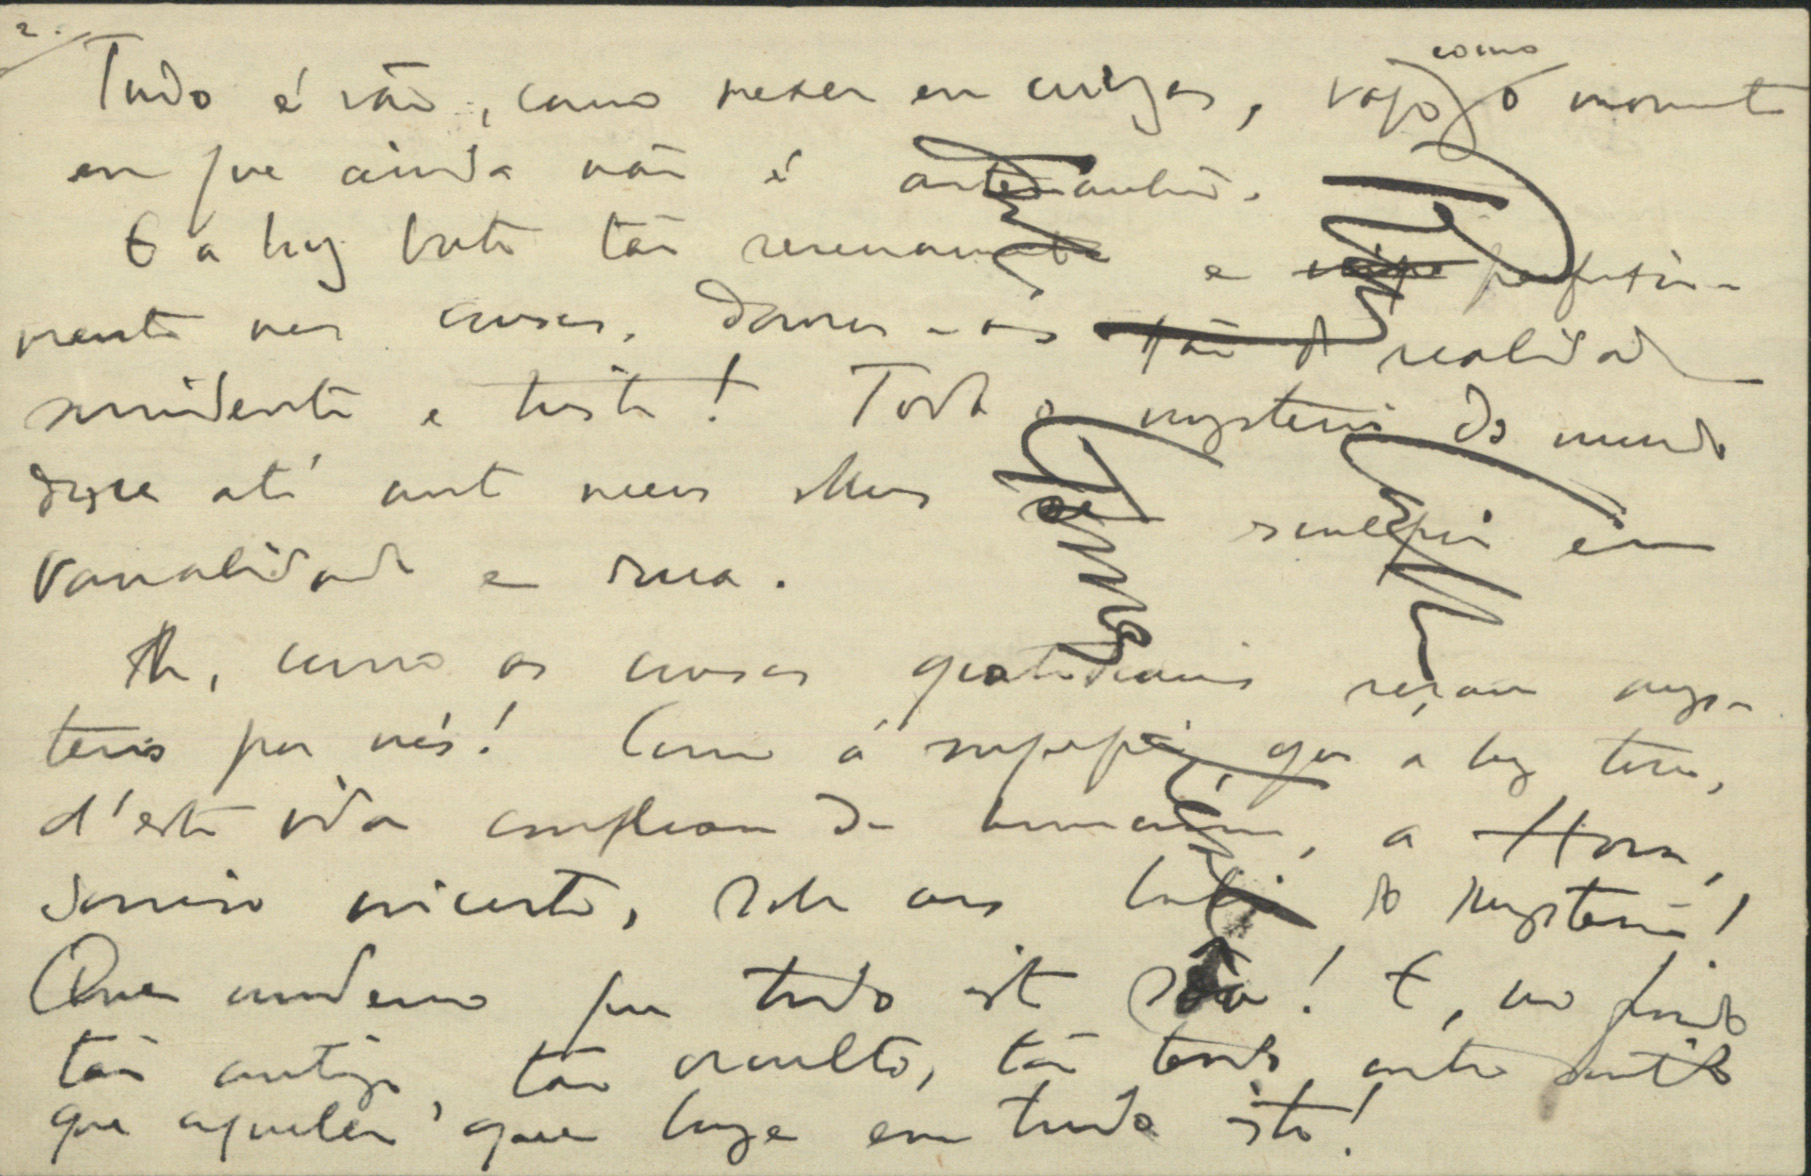 2.
Tudo é vão, como mexer em cinzas, vago como o momento
em que ainda não é antemanhã.
E a luz bate tão serenamente e perfeita-
mente nas cousas, doura-as de realidade
sorridente e triste! Todo o mysterio do mundo
desce até ante meus olhos se esculpir em
banalidade e rua.
Ah, como as cousas quotidianas roçam mys-
terios por nós! Como á superficie, que a luz toca,
d'esta vida complexa de humanos, a Hora,
sorriso incerto, sobe aos labios do Mysterio!
Que moderno que tudo isto sôa! E, no fundo
tão antigo, tão occulto, tão tendo outro sentido
que aquelle que luze em tudo isto!